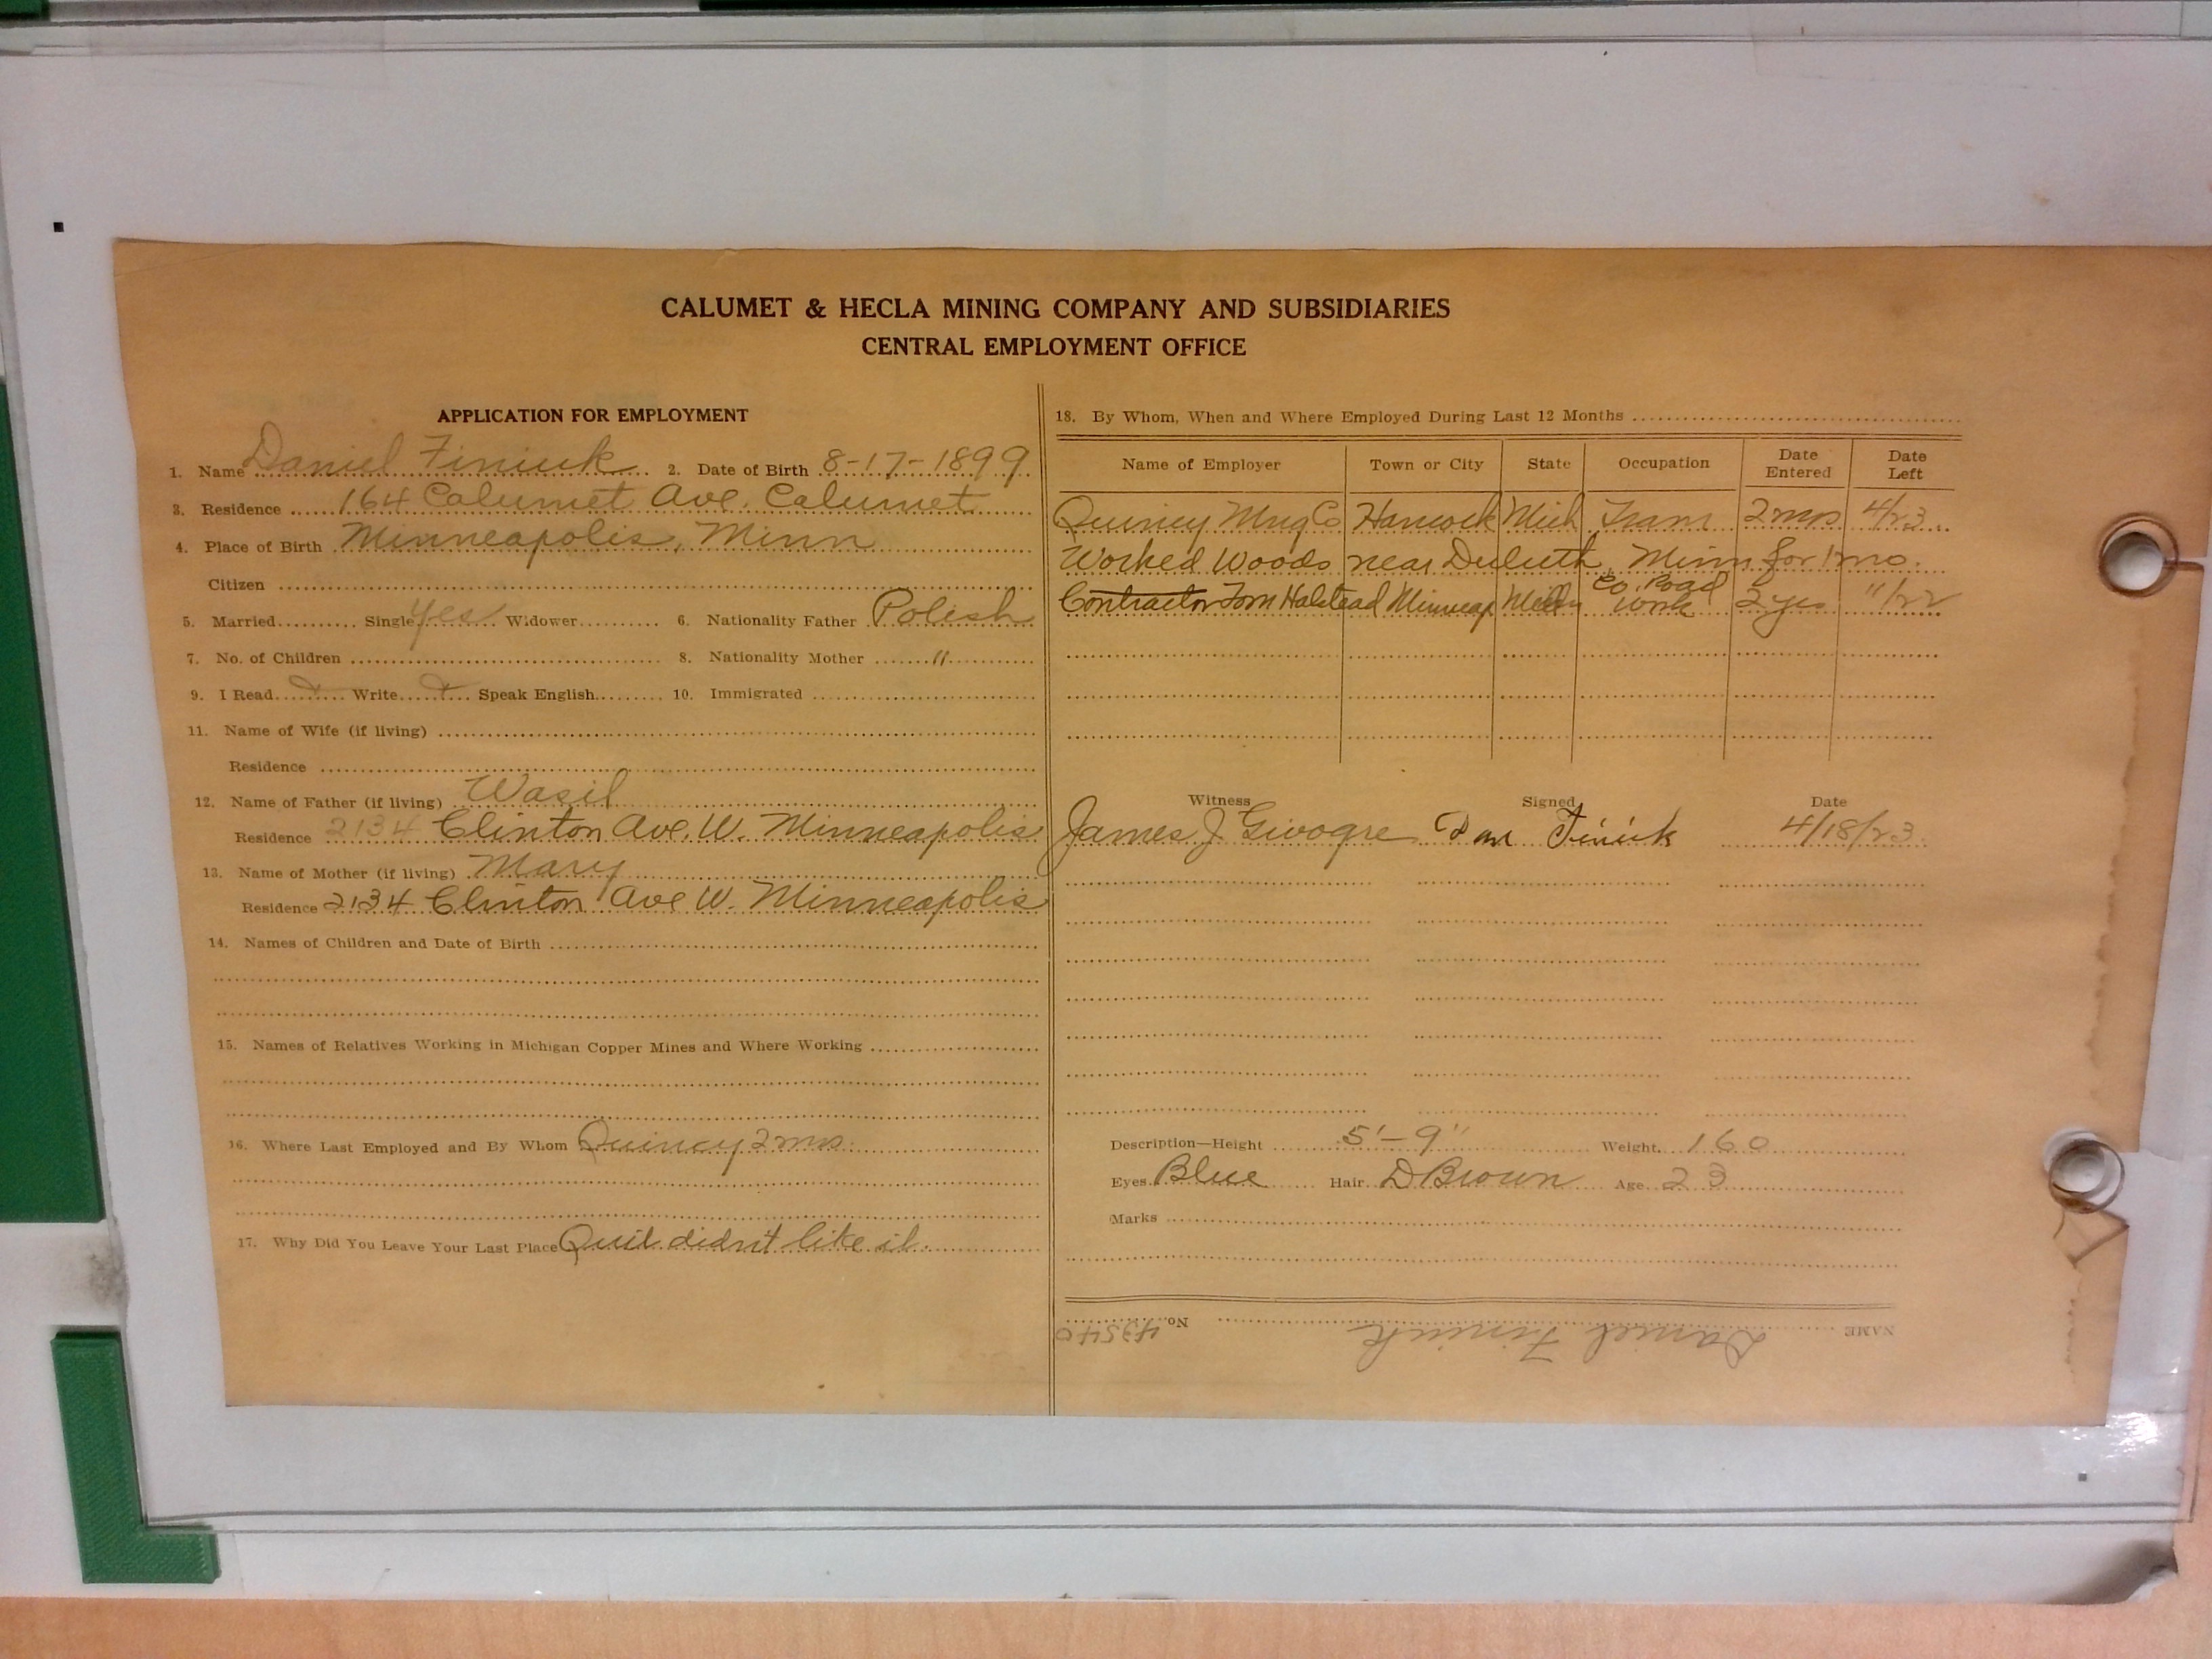 CALUMET & HECLA MINING COMPANY AND SUBSIDIARIES
CENTRAL EMPLOYMENT OFFICE
APPLICATION FOR EMPLOYMENT
1. Name Daniel Finiuk 2. Date of Birth 8-17-1899
3. Residence 164 Calumet Ave. Calumet
4. Place of Birth Minneapolis, Minn
Citizen
5. Married Single yes Widower 6. Nationality Father Polish
7. No. of Children 8. Nationality Mother "
9. I Read Write Speak English 10. Immigrated
11. Name of Wife (if living)
Residence
12. Name of Father (if living) Wasil
Residence 2134 Clinton Ave. W. Minneapolis
13. Name of Mother (if living) Mary
Residence 2134 Clinton Ave W. Minneapolis
14. Names of Children and Date of Birth
15. Names of Relatives Working in Michigan Copper Mines and Where Working
16. Where Last Employed and By Whom Quincy 2 mos.
17. Why Did You Leave Your Last Place Quit didn't like it.
18. By Whom, When and Where Employed During Last 12 Months
Name of Employer Town or City State Occupation Date Entered Date Left
Quincy Mng Co Hancock Mich Tram 2 mos 4/23
Worked Woods near Duluth, Minn for 1 mo.
Contractor Tom Halstead Minneap Co. Road work 2 yrs "/22
Witness Signed Date
James J Givogre Dan Finiuk 4/18/23
Description—Height 5'-9" Weight 160
Eyes Blue Hair D Brown Age 23
Marks
NAME Daniel Finiuk No. 43540